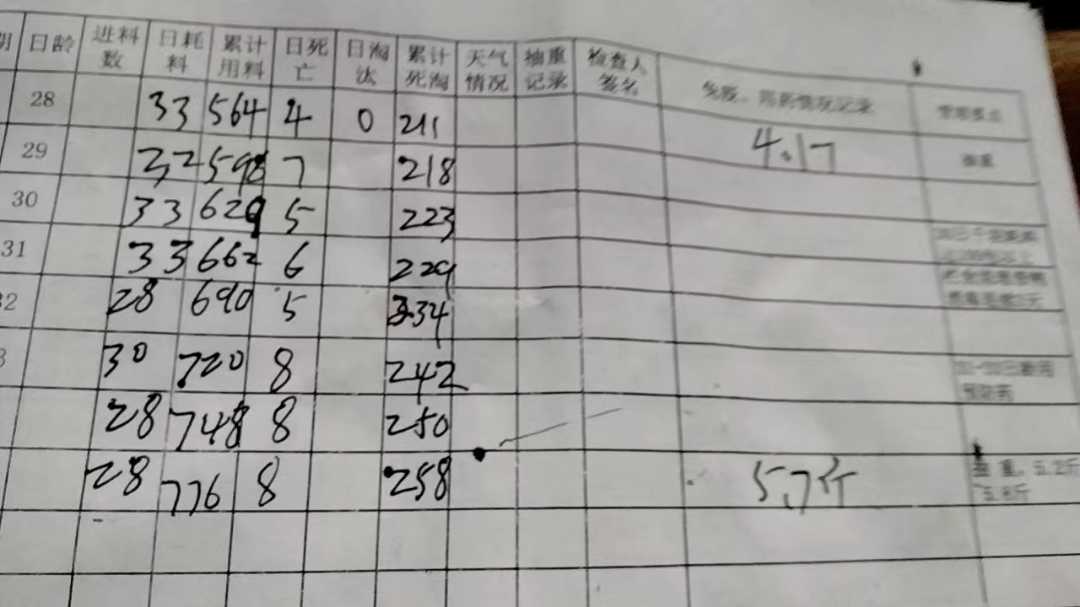 期 日龄 进料数 日耗料 累计用料 日死亡 日淘汰 累计死淘 天气情况 抽重记录 检查人签名 免疫、用药情况记录
28 33 564 4 0 211 4.17
29 32 598 7 218 抽重
30 33 629 5 223
31 33 662 6 229
32 28 690 5 234
30 720 8 242
28 748 8 250
28 776 8 258 5.7斤 抽重，5.2斤
5.8斤